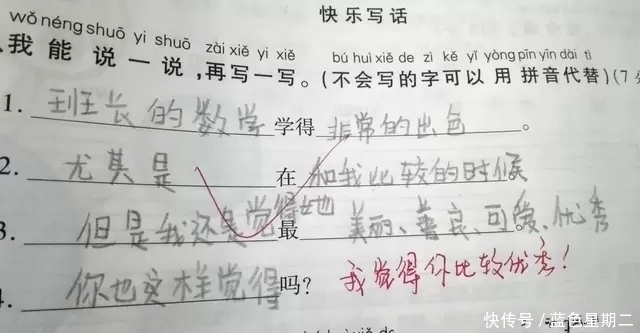 快乐写话
wǒ néng shuō yi shuō zài xiě yi xiě bú huì xiě de zì kě yǐ yòng pīn yīn dài tì
我能说一说,再写一写。(不会写的字可以用拼音代替)(7
1. 班长的数学学得非常的出色。
2. 尤其是在和我比较的时候
3. 但是我还是觉得她最美丽、善良、可爱、优秀
4. 你也这样觉得吗?
我觉得你比较优秀!
快传号/蓝色星期二